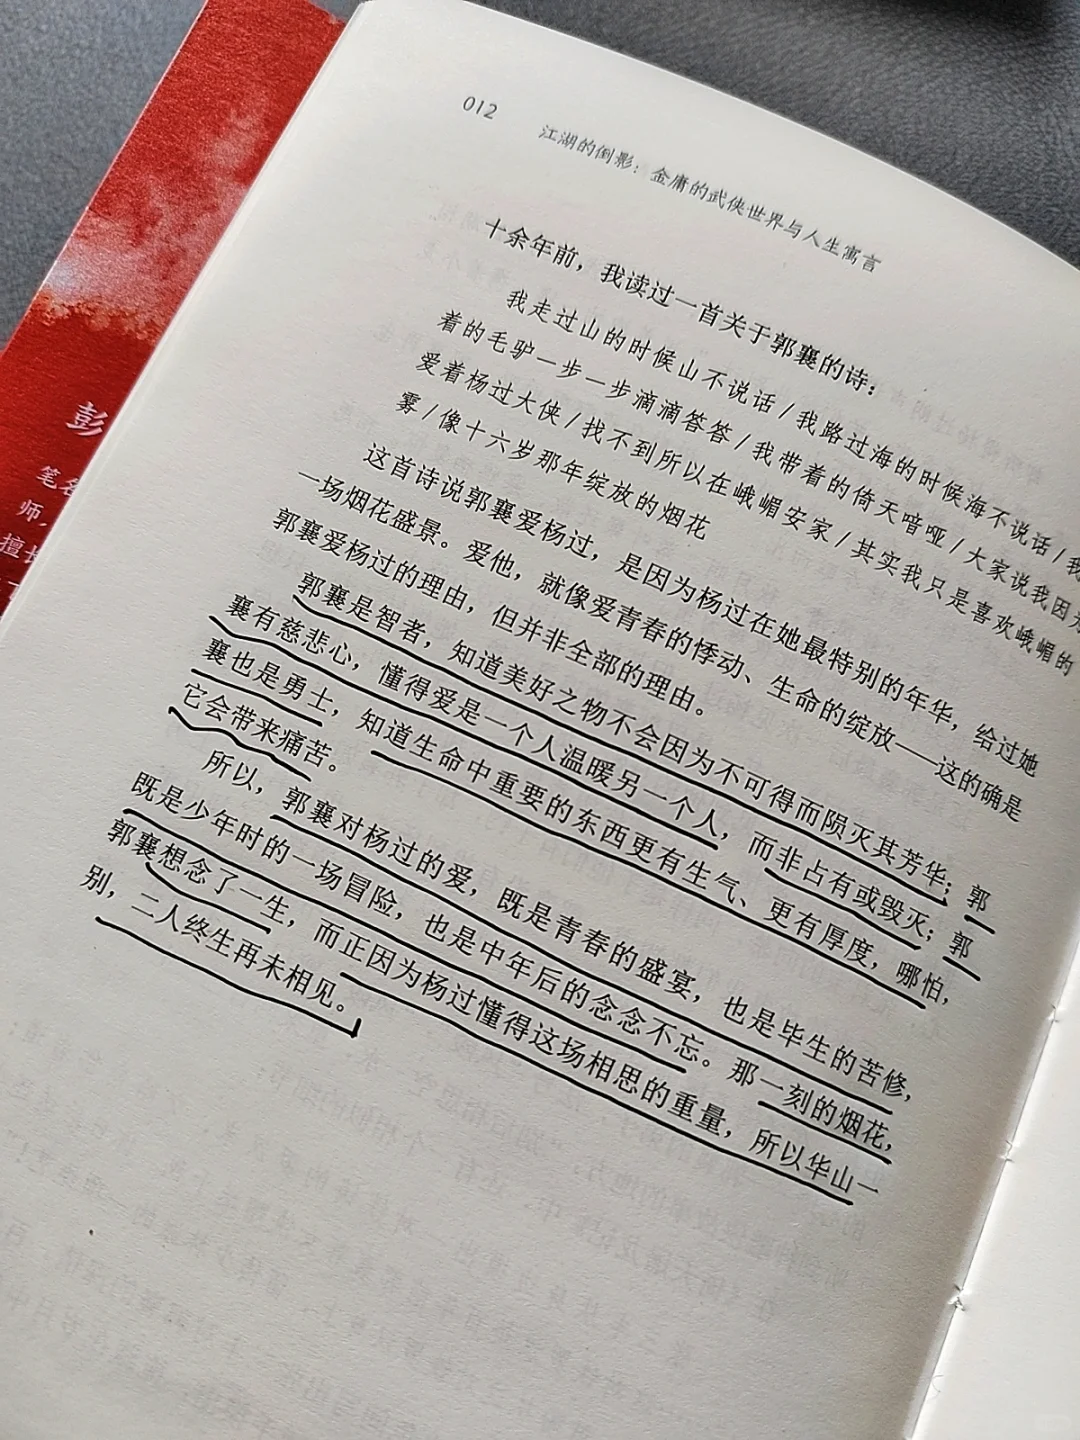 012
江湖的倒影：金庸的武侠世界与人生寓言
十余年前，我读过一首关于郭襄的诗：
我走过山的时候山不说话/我路过海的时候海不说话/我
着的毛驴一步一步滴滴答答/我带着的倚天喑哑/大家说我因为
爱着杨过大侠/找不到所以在峨嵋安家/其实我只是喜欢峨嵋的
雾/像十六岁那年绽放的烟花
这首诗说郭襄爱杨过，是因为杨过在她最特别的年华，给过她
一场烟花盛景。爱他，就像爱青春的悸动、生命的绽放——这的确是
郭襄爱杨过的理由，但并非全部的理由。
郭襄是智者，知道美好之物不会因为不可得而陨灭其芳华；郭
襄有慈悲心，懂得爱是一个人温暖另一个人，而非占有或毁灭；郭
襄也是勇士，知道生命中重要的东西更有生气、更有厚度，哪怕，
它会带来痛苦。
所以，郭襄对杨过的爱，既是青春的盛宴，也是毕生的苦修，
既是少年时的一场冒险，也是中年后的念念不忘。那一刻的烟花，
郭襄想念了一生，而正因为杨过懂得这场相思的重量，所以华山一
别，二人终生再未相见。
彭
笔名
师，
擅长